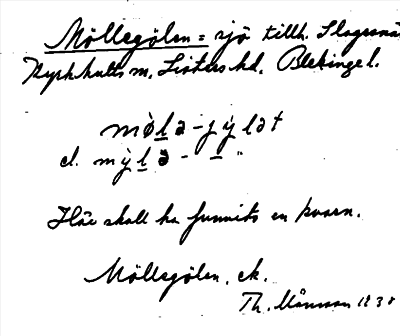 Möllegölen = sjö tillh. Slagesnäs
Kyrkhults sn, Listers hd, Blekinge l.
møl̲ə-jỳlət
el. mỳl̲ə- – "
Här skall ha funnits en kvarn.
Möllegölen, ek.
Th. Månsson 1930